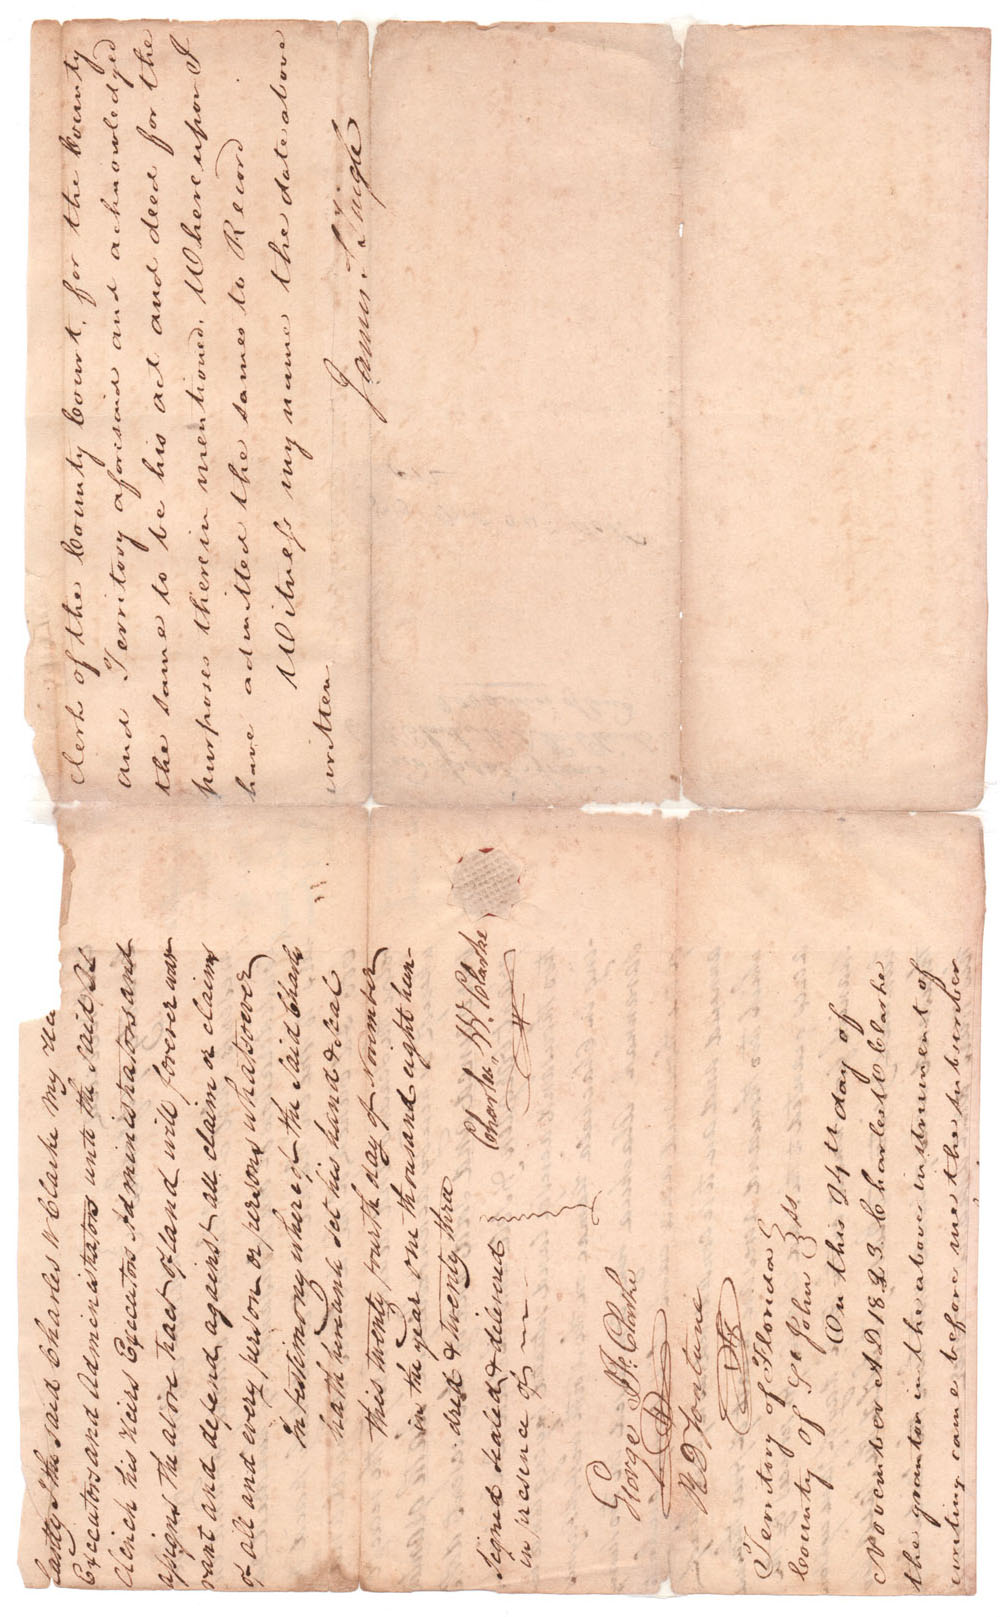 lants I the said Charles W Clarke my
Executors and Administrators unto the said
Clench his Heirs Executors Administrators and
Assigns the above tract of land will forever war-
rant and defend against all claim or claims
of all and every person or persons whatsoever
In testimony whereof the said Charles
hath hereunto set his hand & seal
this twenty fourth day of November
in the year one thousand eight hun-
dred & twenty three
Charles W. Clarke
Signed sealed & delivered
in presence of
George J. F. Clarke
Territory of Florida
County of St John } SS.
On this 24th day of
November AD 1823. Charles W Clarke
the grantor in the above instrument of
writing came before me the subscriber
Clerk of the County Court, for the County
and Territory aforesaid and acknowledged
the same to be his act and deed for the
purposes therein mentioned. Whereupon I
have admitted the same to Record
Witness my name the date above
written
James Tingle